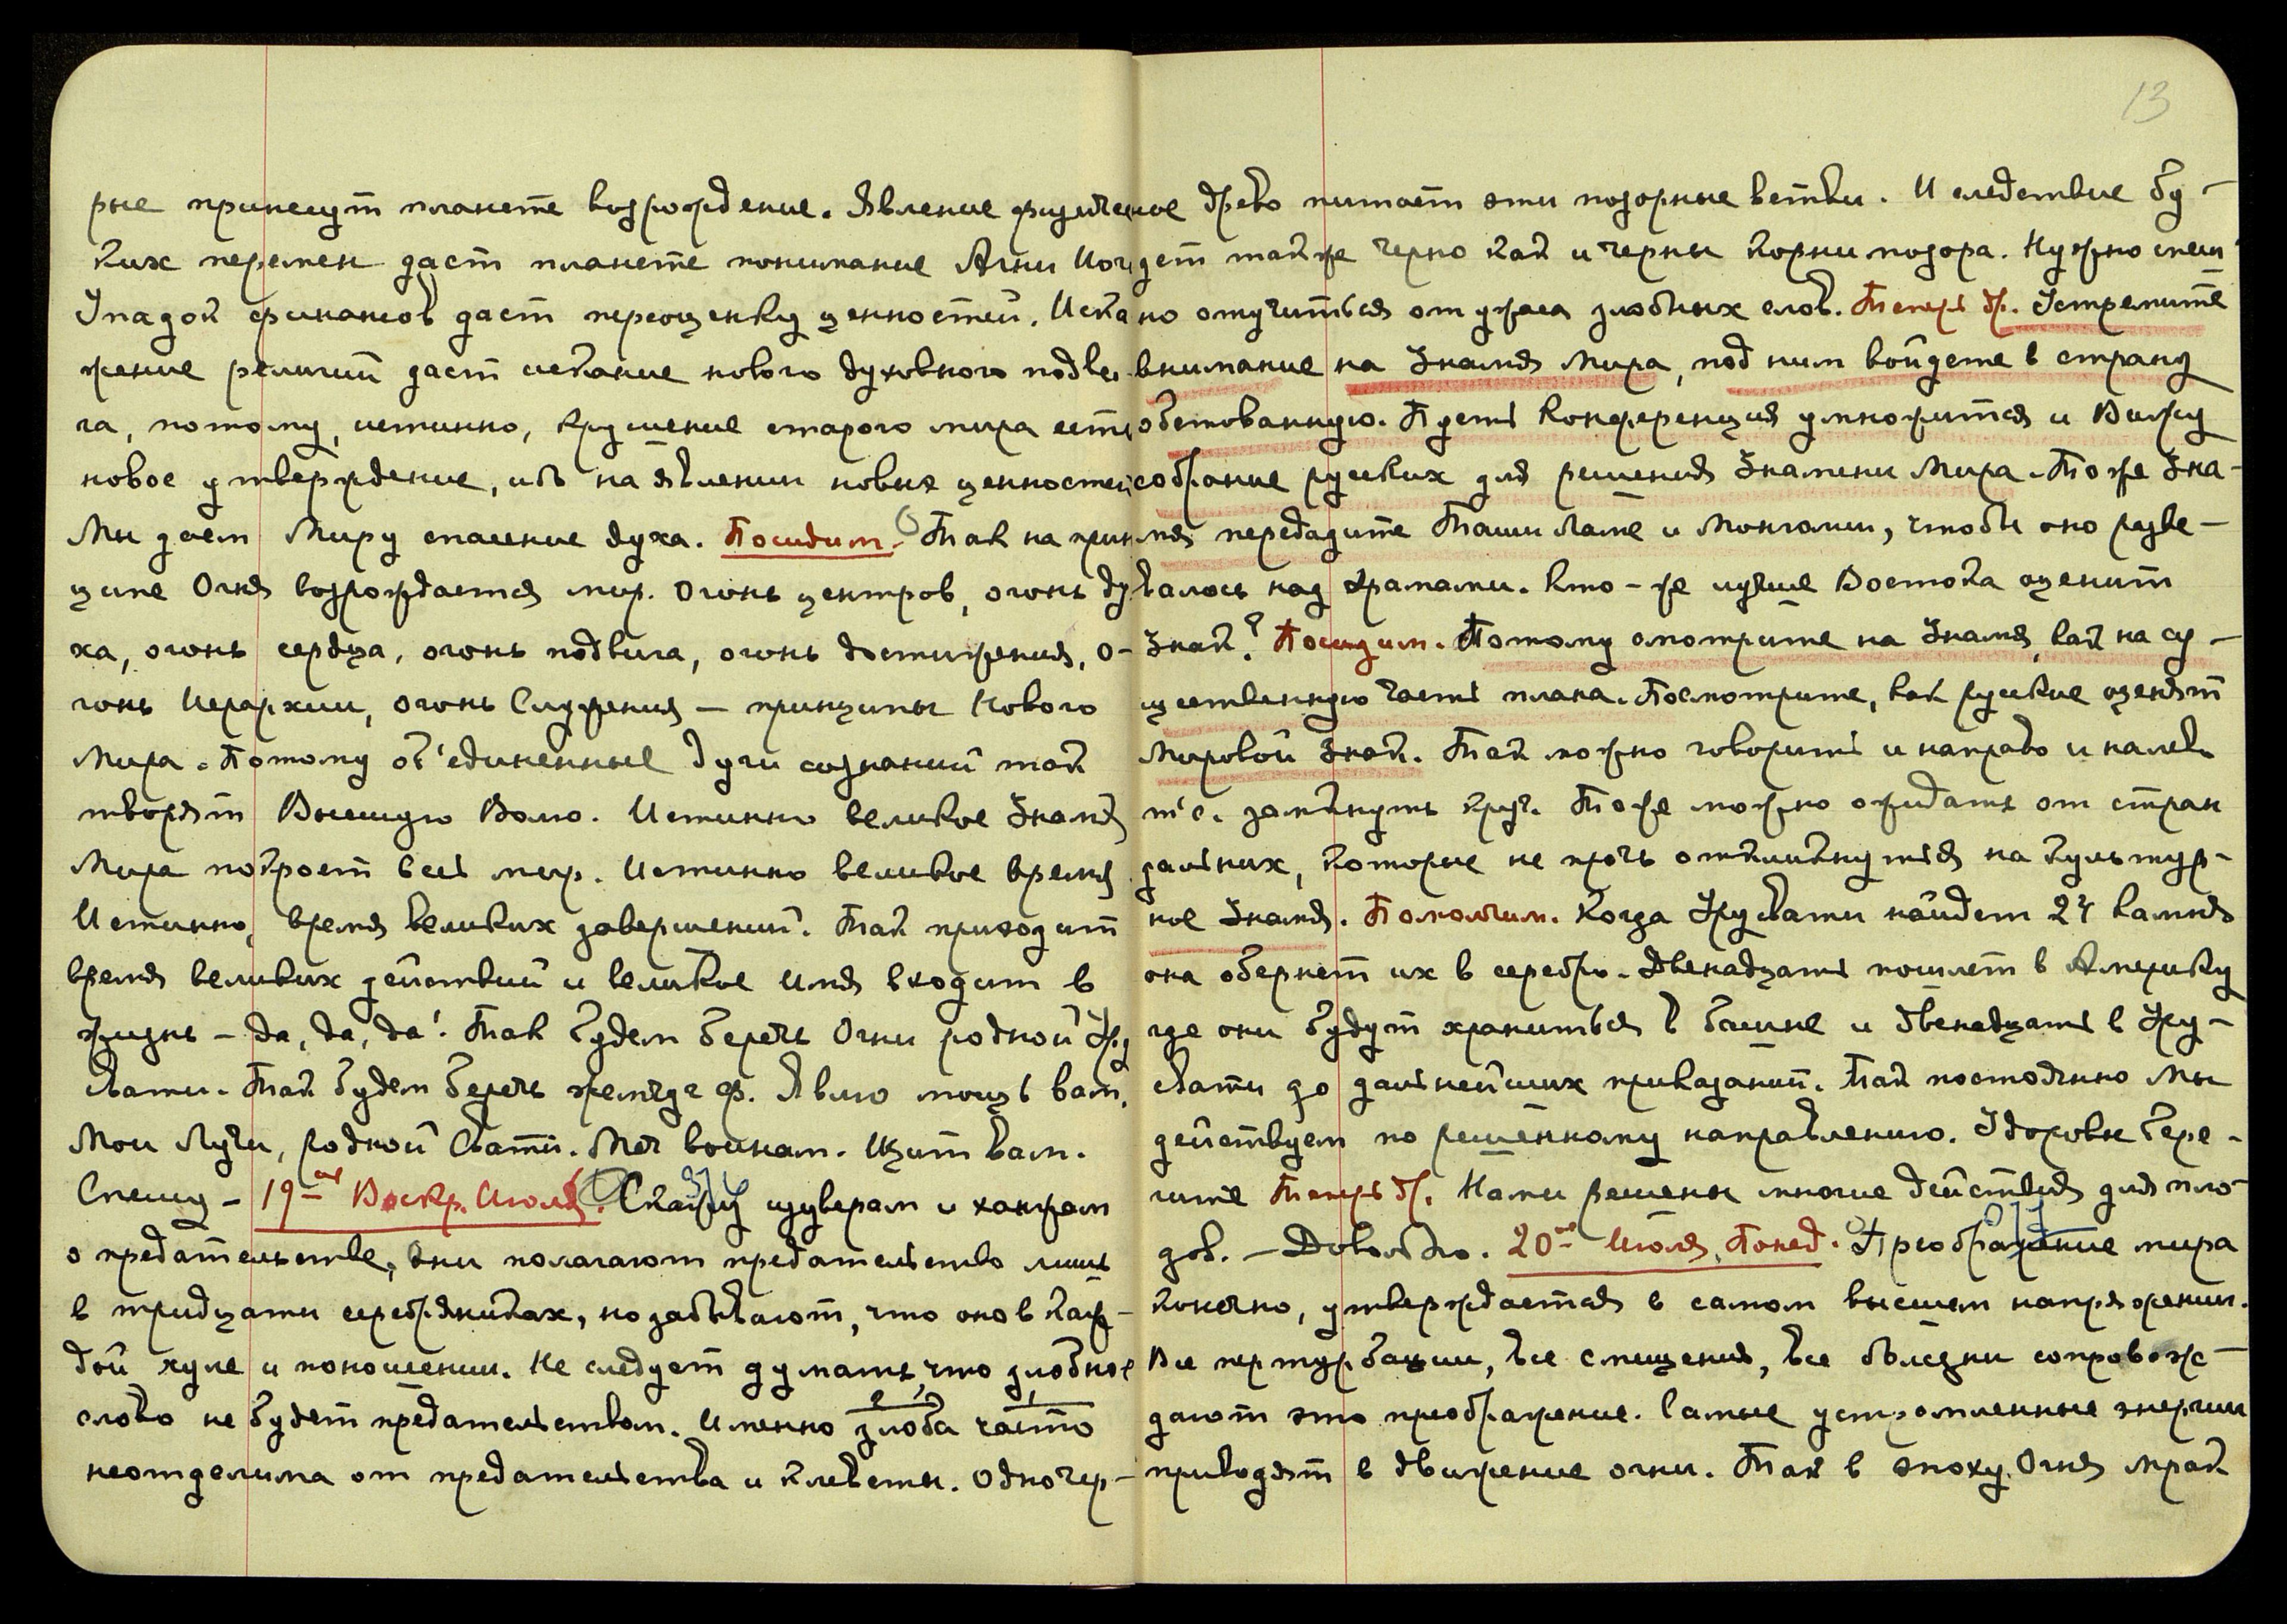 рые принесут планете возрождение. Явление физичес
ких перемен даст планете понимание Агни Йоги
Упадок финансов даст переоценку ценностей. Иска
жение религий даст искание нового духовного подви
га, потому, истинно, крушение старого мира есть
новое утверждение, ибо на явлении новых ценностей
Мы даем Миру спасение духа. Посидим. Так на прин
ципе Огня возрождается мир. Огонь центров, огонь ду
ха, огонь сердца, огонь подвига, огонь достижения, о-
гонь Иерархии, огонь Служения — принципы Нового
Мира. Потому об'единенные дуги сознаний так
творят Высшую Волю. Истинно великое Знамя
Мира покроет весь мир. Истинно великое время
Истинно, время великих завершений. Так приходит
время великих действий и великое Имя входит в
жизнь — да, да, да! Так будем беречь Огни родной Уру
свати. Так будем беречь жемчуг ф. Явлю мощь вам,
Мои Лучи, родной Свати. Меч воинам. Щит вам.
Спешу — 19-ое Воскр. Июля. Скажу изуверам и ханжам
о предательстве, они полагают предательство лишь
в тридцати серебрянниках, но забывают, что оно в каж-
дой хуле и поношении. Не следует думать, что злобное
слово не будет предательством. Именно злоба часто
неотделима от предательства и клеветы. Одно чер-
13
ное древо питает эти позорные ветви. И следствие бу-
дет так же черно как и черны корни позора. Нужно спеш
но отучиться от ужаса злобных слов. Теперь др. Устремите
внимание на Знамя Мира, под ним войдете в страну
обетованную. Пусть Конференция умножится и Вижу
собрание русских для решения Знамени Мира. Тоже Зна-
мя передадите Таши Ламе и Монголии, чтобы оно разве-
валось над храмами. Кто-же лучше Востока оценит
Знак? Посидим. Потому смотрите на Знамя, как на су-
щественную часть плана. Посмотрите, как русские оценят
Мировой Знак. Так можно говорить и направо и налево
т.е. замкнуть круг. Тоже можно ожидать от стран
дальних, которые не прочь откликнуться на культур-
ное Знамя. Помолчим. Когда Урусвати найдет 24 камня
она обернет их в серебро. Двенадцать пошлет в Америку
где они будут храниться в башне и двенадцать в Уру-
свати до дальнейших приказаний. Так постоянно Мы
действуем по решенному направлению. Здоровье бере-
гите Теперь др. Нами решены многие действия для пло-
дов. — Довольно. 20-ое Июля, Понед. Преображение мира
конечно, утверждается в самом высшем напряжении.
Все пертурбации, все смещения, все болезни сопровож-
дают это преображение. Самые устремленные энергии
приводят в движение огни. Так в эпоху Огня мрак